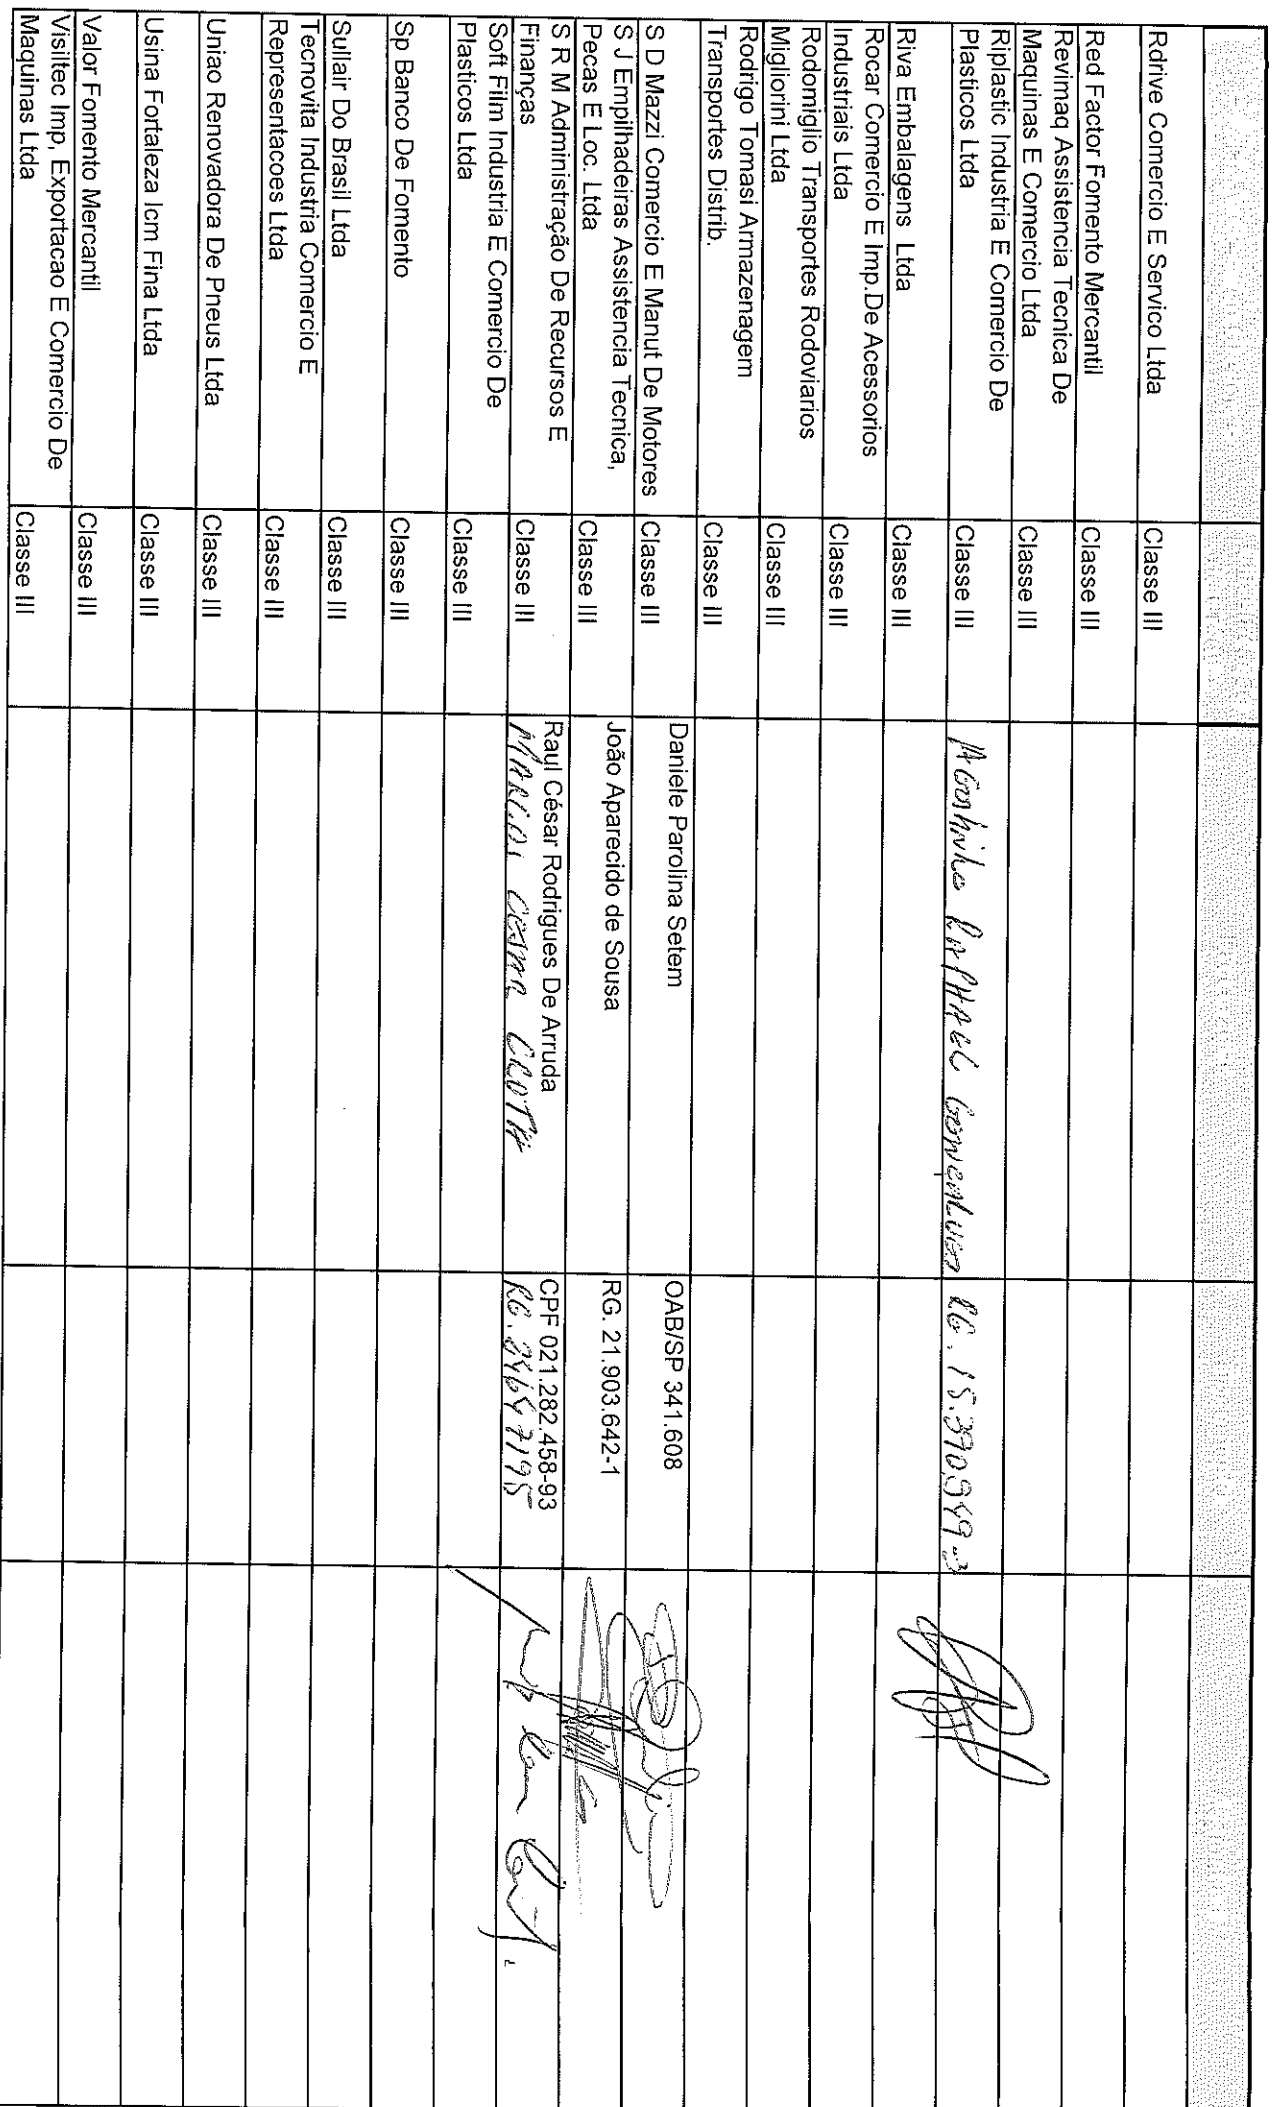 Rdrive Comercio E Servico Ltda Classe III
Red Factor Fomento Mercantil Classe III
Revimaq Assistencia Tecnica De
Maquinas E Comercio Ltda Classe III
Riplastic Industria E Comercio De
Plasticos Ltda Classe III RG. 15.390.949-3
Riva Embalagens Ltda Classe III
Rocar Comercio E Imp.De Acessorios
Industriais Ltda Classe III
Rodomiglio Transportes Rodoviarios
Migliorini Ltda Classe III
Rodrigo Tomasi Armazenagem
Transportes Distrib. Classe III
S D Mazzi Comercio E Manut De Motores Classe III Daniele Parolina Setem OAB/SP 341.608
S J Empilhadeiras Assistencia Tecnica,
Pecas E Loc. Ltda Classe III João Aparecido de Sousa RG. 21.903.642-1
S R M Administração De Recursos E
Finanças Classe III Raul César Rodrigues De Arruda CPF 021.282.458-93
RG.
Soft Film Industria E Comercio De
Plasticos Ltda Classe III
Sp Banco De Fomento Classe III
Sullair Do Brasil Ltda Classe III
Tecnovita Industria Comercio E
Representacoes Ltda Classe III
Uniao Renovadora De Pneus Ltda Classe III
Usina Fortaleza Icm Fina Ltda Classe III
Valor Fomento Mercantil Classe III
Visiltec Imp, Exportacao E Comercio De
Maquinas Ltda Classe III